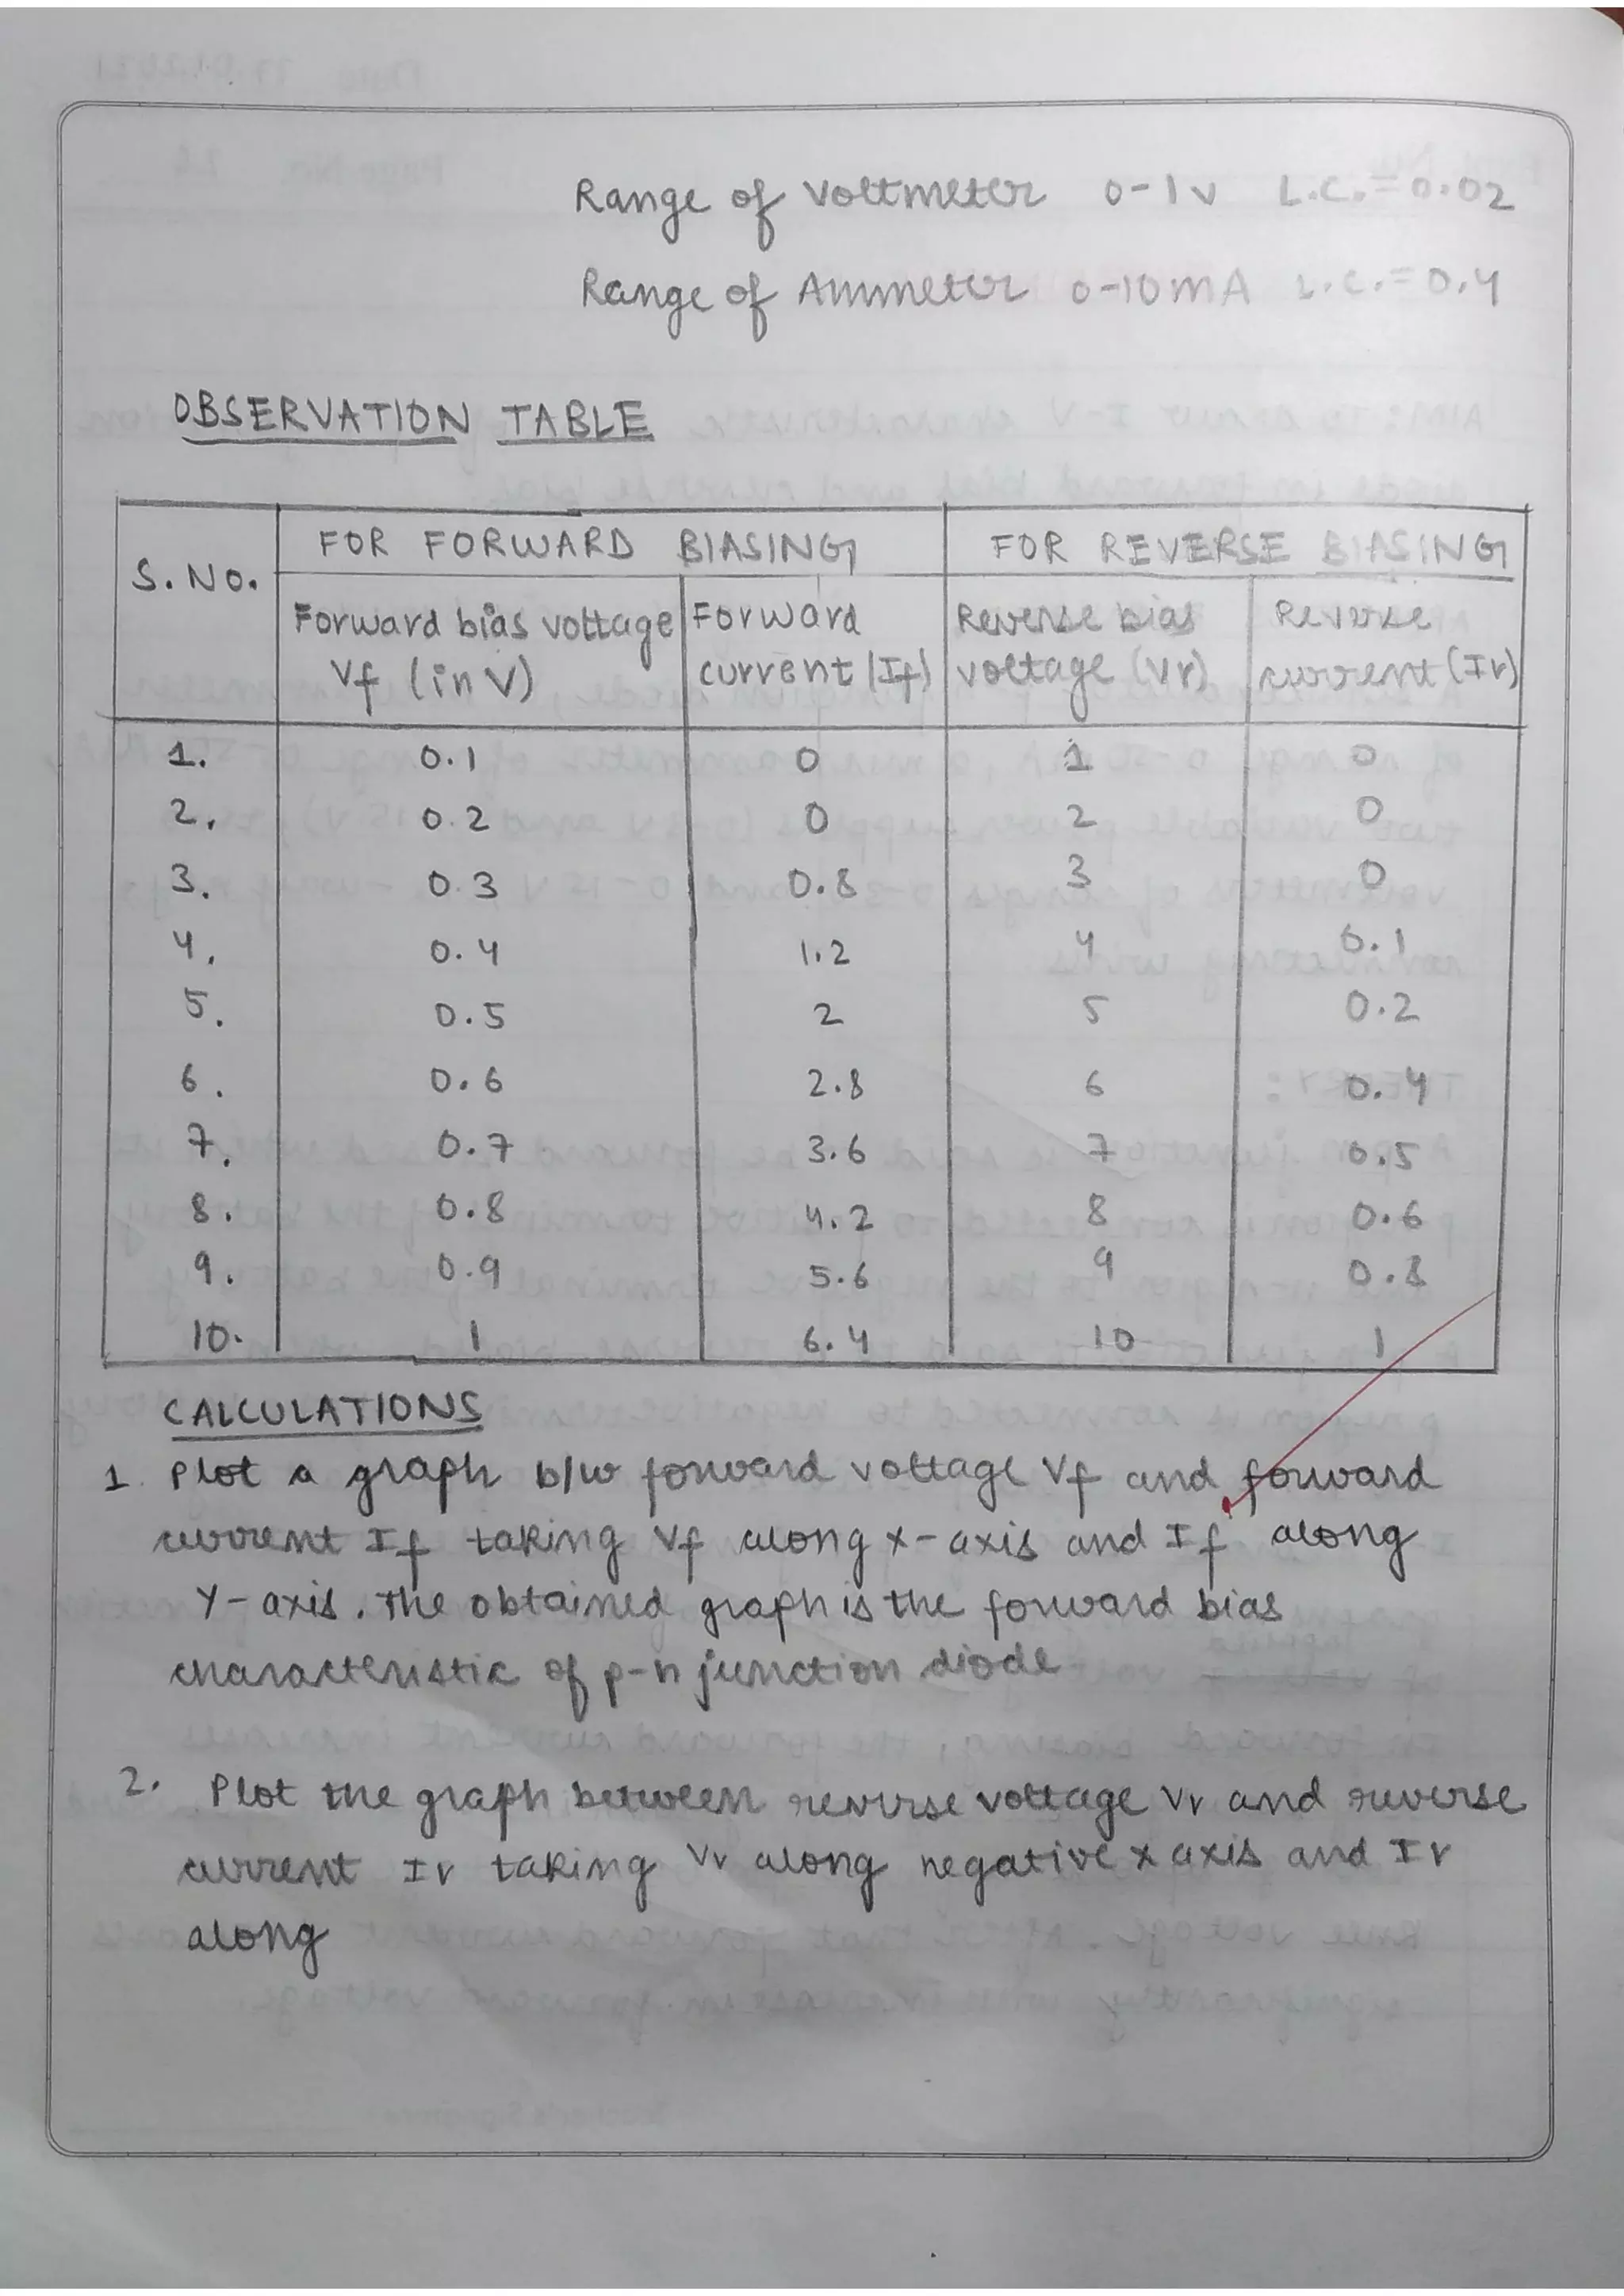 Range of Voltmeter 0-1v L.C.=0.02
Range of Ammeter 0-10mA L.C.=0.4
OBSERVATION TABLE
S.No. FOR FORWARD BIASING FOR REVERSE BIASING
Forward bias voltage Vf (in V) Forward current (If) Reverse bias voltage (Vr) Reverse current (Ir)
1. 0.1 0 1 0
2. 0.2 0 2 0
3. 0.3 0.8 3 0
4. 0.4 1.2 4 0.1
5. 0.5 2 5 0.2
6. 0.6 2.8 6 0.4
7. 0.7 3.6 7 0.5
8. 0.8 4.2 8 0.6
9. 0.9 5.6 9 0.8
10. 1 6.4 10 1
CALCULATIONS
1. Plot a graph b/w forward voltage Vf and forward
current If taking Vf along x-axis and If along
Y-axis. The obtained graph is the forward bias
characteristic of p-n junction diode
2. Plot the graph between reverse voltage Vr and reverse
current Ir taking Vr along negative x axis and Ir
along